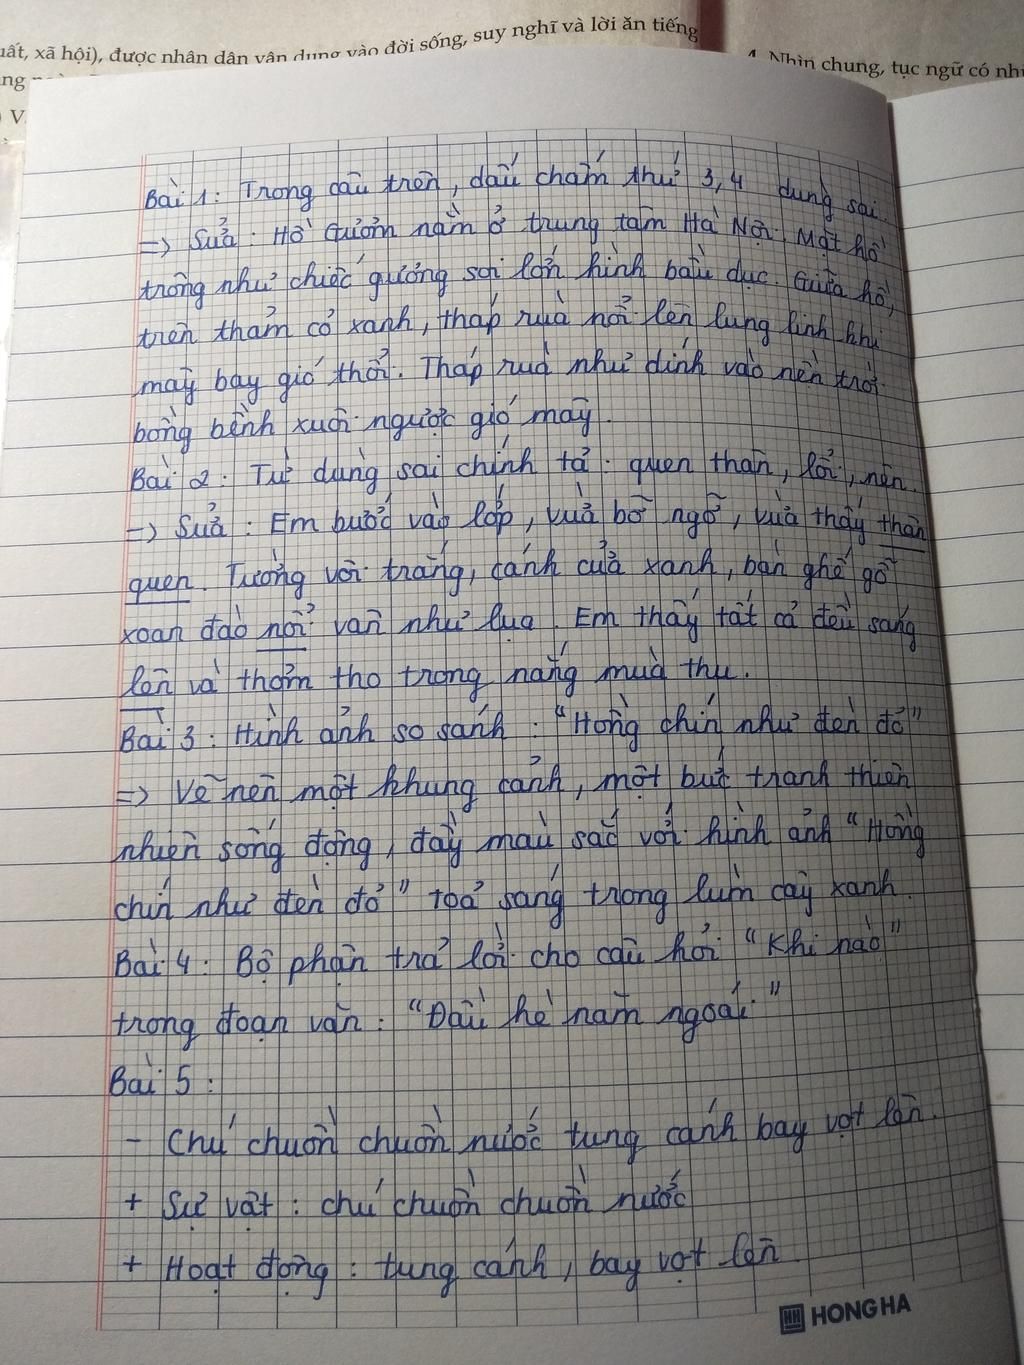 uất, xã hội), được nhân dân vận dụng vào đời sống, suy nghĩ và lời ăn tiếng
4. Nhìn chung, tục ngữ có
Bài 1: Trong câu trên, dấu chấm thứ 3, 4 dùng sai.
=> Sửa: Hồ Gươm nằm ở trung tâm Hà Nội. Mặt hồ
trông như chiếc gương soi lớn hình bầu dục. Giữa hồ,
trên thảm cỏ xanh, tháp rùa nổi lên lung linh khi
mây bay gió thổi. Tháp rùa như dính vào nền trời
bồng bềnh xuôi ngược gió mây.
Bài 2: Từ dùng sai chính tả: quen thân, lổi, nên.
=> Sửa: Em bước vào lớp, vừa bỡ ngỡ, vừa thấy thân
quen. Tường vôi trắng, cánh cửa xanh, bàn ghế gỗ
xoan đào nổi vân như lụa. Em thấy tất cả đều sáng
lên và thơm tho trong nắng mùa thu.
Bài 3: Hình ảnh so sánh: "Hồng chín như đèn đỏ"
=> Vẽ nên một khung cảnh, một bức tranh thiên
nhiên sống động, đầy màu sắc với hình ảnh "Hồng
chín như đèn đỏ" toả sáng trong lùm cây xanh.
Bài 4: Bộ phận trả lời cho câu hỏi "Khi nào"
trong đoạn văn: "Đầu hè năm ngoái"
Bài 5:
- Chú chuồn chuồn nước tung cánh bay vọt lên.
+ Sự vật: chú chuồn chuồn nước
+ Hoạt động: tung cánh, bay vọt lên
HH HONG HA